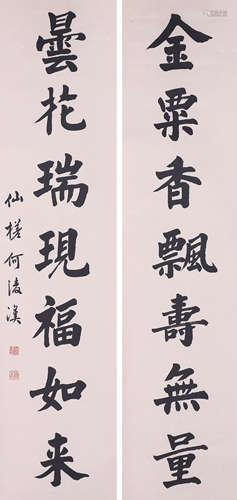 金粟香飄壽無量
曇花瑞現福如来
仙槎何淩漢